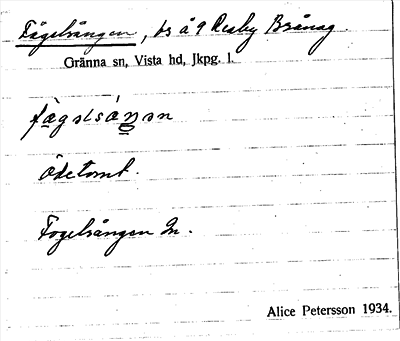 Fågelsången, bs å 9 Reaby Brånag
Gränna sn, Vista hd, Jkpg. l.
fågəlsåŋən
Ödetomt.
Fogelsången Gn.
Alice Petersson 1934.